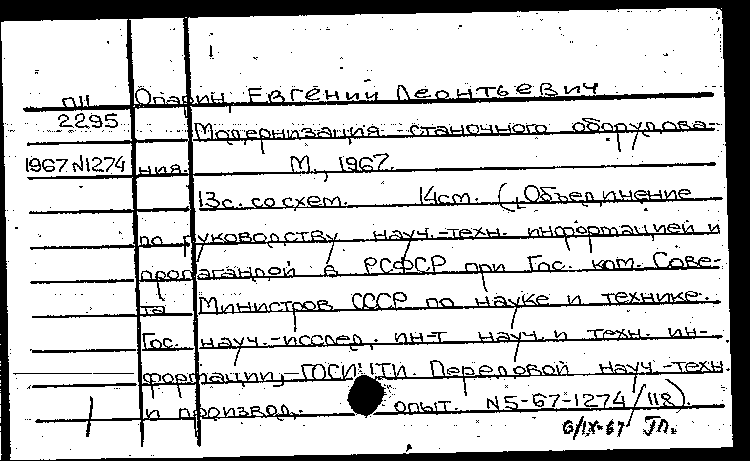 П11 Опарин, Евгений Леонтьевич
2295
Модернизация станочного оборудова-
1967 N1274 ния. М., 1967.
13с. со схем. 14см. („Объединение
по руководству науч.-техн. информацией и
пропагандой в РСФСР при Гос. ком. Сове-
та Министров СССР по науке и технике.
Гос. науч.-исслед. ин-т науч. и техн. ин-
формации, ГОСИНТИ. Передовой науч.-техн.
и производ. опыт. N5-67-1274/118).
6/IX-67